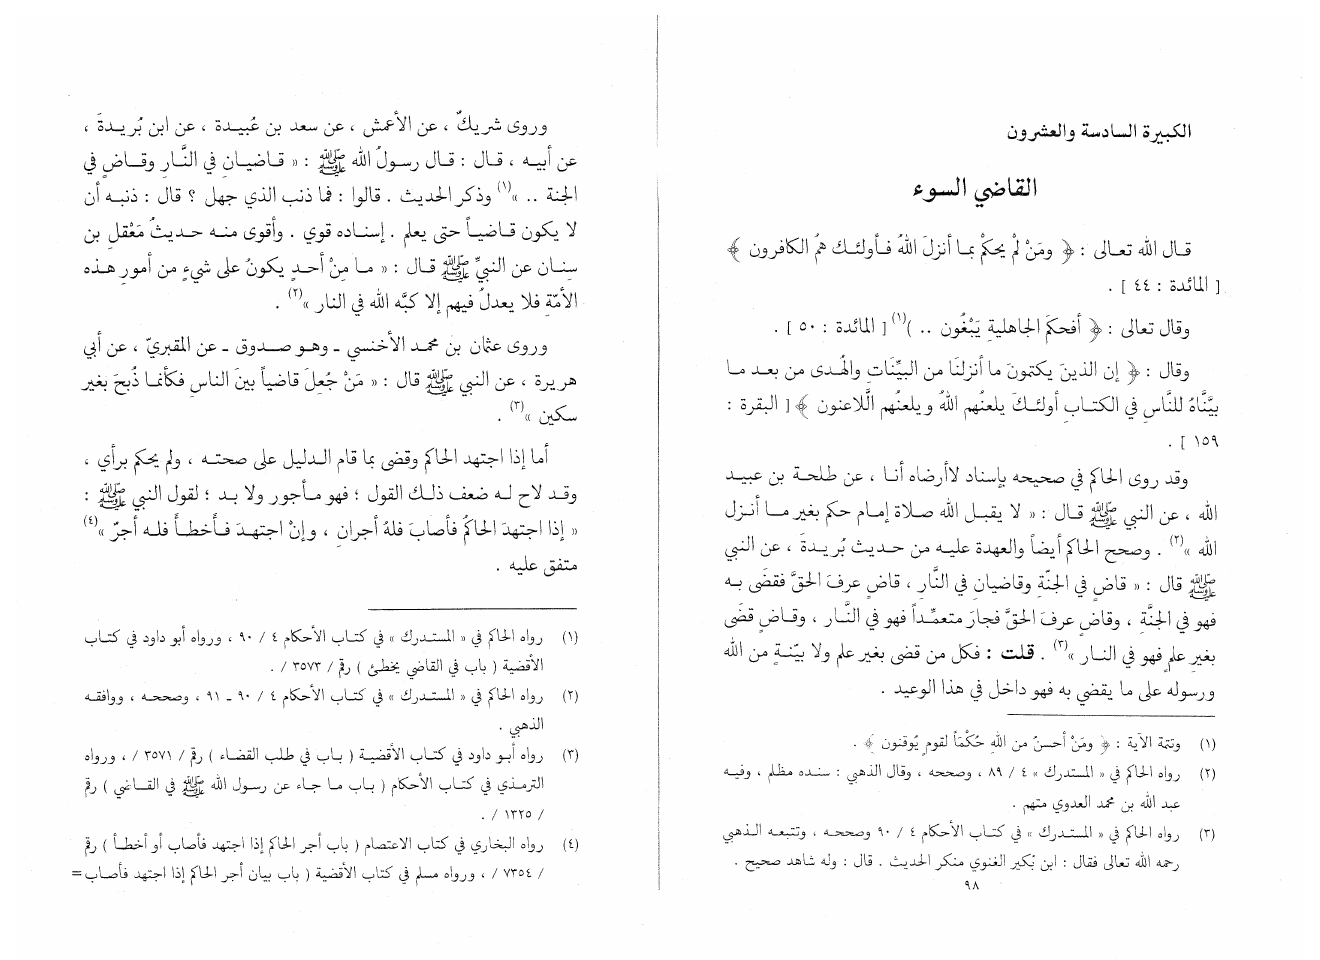 الكبيرة السادسة والعشرون
القاضي السوء
قـال الله تعـالى : ﴿ ومَنْ لمْ يحكمْ بمـا أنزلَ اللهُ فـأولئـك همُ الكافرون ﴾
[ المائدة : ٤٤ ] .
وقال تعالى : ﴿ أفحكمَ الجاهليةِ يَبْغُون .. )(١) [ المائدة : ٥٠ ] .
وقال : ﴿ إن الذينَ يكتمونَ ما أنزلنَا من البيِّنَاتِ والهُدى من بعد مـا
بيَّنَّاهُ للنَّاسِ في الكتـابِ أولئـكَ يلعنُهم اللهُ ويلعنُهم اللَّاعنون ﴾ [ البقرة :
١٥٩ ] .
وقد روى الحاكم في صحيحه بإسناد لاأرضاه أنـا ، عن طلحـة بن عبيـد
الله ، عن النبي ﷺ قـال : « لا يقبـل الله صلاة إمـام حكم بغير مـا أنـزل
الله »(٢) . وصحح الحاكم أيضاً والعهدة عليـه من حديث بُريـدةَ ، عن النبي
ﷺ قال : « قاضٍ في الجنّةِ وقاضيان في النَّارِ ، قاضٍ عرفَ الحقَّ فقضَى بـه
فهو في الجنَّةِ ، وقاضٍ عرفَ الحقَّ فجارَ متعمِّداً فهو في النَّـار ، وقـاضٍ قضَى
بغيرِ علمٍ فهو في النـار »(٣) . قلت : فكل من قضى بغير علم ولا بيّنـةٍ من الله
ورسوله على ما يقضي به فهو داخل في هذا الوعيد .
(١) وتتمة الآية : ﴿ ومَنْ أحسنُ من اللهِ حُكْمَاً لقومٍ يُوقنون ﴾ .
(٢) رواه الحاكم في « المستدرك » ٤ / ٨٩ ، وصححه ، وقال الذهبي : سنده مظلم ، وفيـه
عبد الله بن محمد العدوي متهم .
(٣) رواه الحاكم في « المستدرك » في كتاب الأحكام ٤ / ٩٠ وصححـه ، وتتبعـه الـذهبي
رحمه الله تعالى فقال : ابن بُكير الغنوي منكر الحديث . قال : وله شاهد صحيح .
٩٨
وروى شريكٌ ، عن الأعمش ، عن سعد بن عُبيـدة ، عن ابن بُريـدةَ ،
عن أبيـه ، قـال : قـال رسـولُ الله ﷺ : « قـاضيـانِ في النَّـارِ وقـاضٍ في
الجنة .. »(١) وذكر الحديث . قالوا : فما ذنب الذي جهل ؟ قال : ذنبـه أن
لا يكون قـاضيـاً حتى يعلم . إسنـاده قوي . وأقوى منـه حـديثُ مَعْقـلِ بن
سِنـان عن النبيِّ ﷺ قـال : « مـا مِنْ أحـدٍ يكونُ على شيءٍ من أمورِ هـذه
الأمّةِ فلا يعدلُ فيهم إلا كبَّه الله في النار »(٢) .
وروى عثمان بن محمد الأخنسي ـ وهـو صـدوق ـ عن المقبريّ ، عن أبي
هريرة ، عن النبي ﷺ قال : « مَنْ جُعِلَ قاضياً بينَ الناسِ فكأنمـا ذُبحَ بغير
سكين »(٣) .
أما إذا اجتهد الحاكم وقضى بما قام الـدليل على صحتـه ، ولم يحكم برأي ،
وقـد لاح لـه ضعف ذلـك القول ؛ فهو مـأجور ولا بـد ؛ لقول النبي ﷺ :
« إذا اجتهدَ الحاكمُ فأصابَ فلهُ أجرانِ ، وإنْ اجتهـدَ فـأخطـأَ فلـه أجرٌ »(٤)
متفق عليه .
(١) رواه الحاكم في « المستدرك » في كتاب الأحكام ٤ / ٩٠ ، ورواه أبو داود في كتاب
الأقضية ( باب في القاضي يخطئ ) رقم / ٣٥٧٣ / .
(٢) رواه الحاكم في « المستدرك » في كتـاب الأحكام ٤ / ٩٠ ـ ٩١ ، وصححـه ، ووافقـه
الذهبي .
(٣) رواه أبـو داود في كتاب الأقضيـة ( بـاب في طلب القضاء ) رقم / ٣٥٧١ / ، ورواه
الترمذي في كتـاب الأحكام ( بـاب مـا جـاء عن رسول الله ﷺ في القـاضي ) رقم
/ ١٣٢٥ / .
(٤) رواه البخاري في كتاب الاعتصام ( باب أجر الحاكم إذا اجتهد فأصاب أو أخطـأ ) رقم
/ ٧٣٥٤ / ، ورواه مسلم في كتاب الأقضية ( باب بيان أجر الحاكم إذا اجتهد فأصـاب=